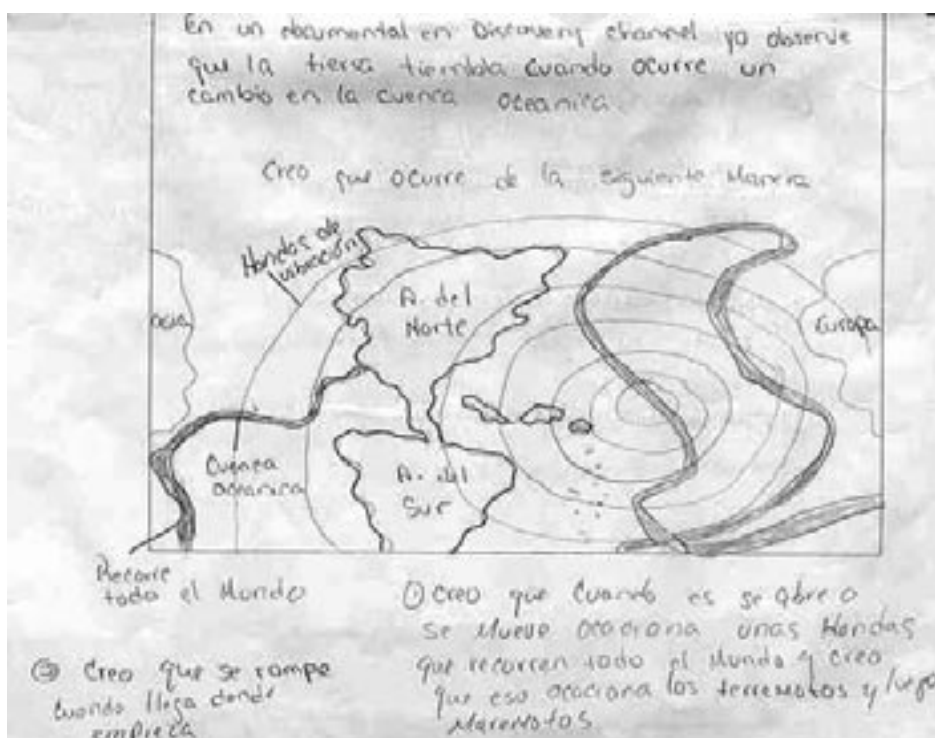 En un documental en Discovery channel yo observe
que la tierra tiembla cuando ocurre un
cambio en la cuenca oceanica
Creo que ocurre de la siguiente Manera
Hondas de
A. del
Norte
Europa
Cuenca
oceanica
A. del
Sur
Recorre
todo el Mundo
① Creo que cuando es se abre o
se Mueve ocaciona unas Hondas
que recorren todo el Mundo y creo
que eso ocaciona los terremotos y luego
Maremotos
② Creo que se rompe
cuando llega donde
empieza